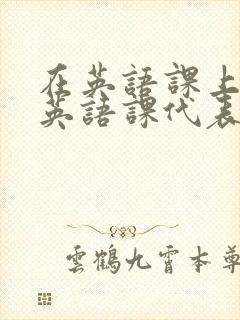 在英語課上
英語課代表
雲鶴九霄本尊